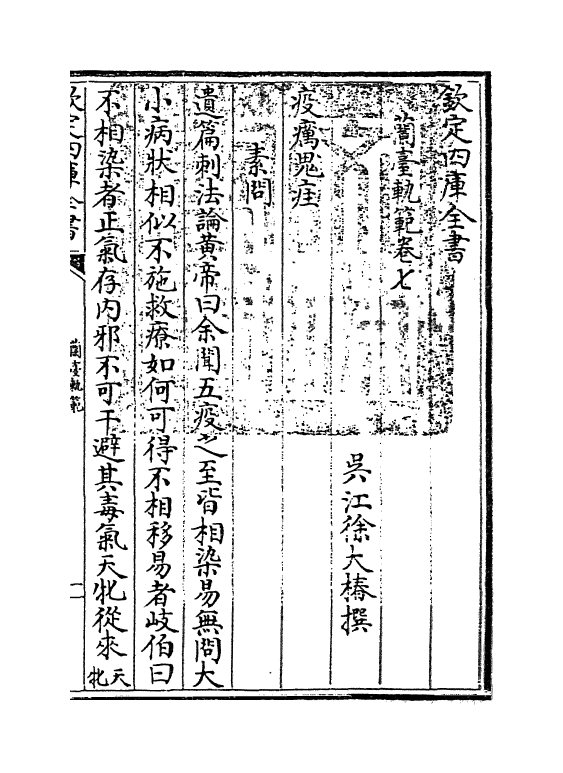 欽定四庫全書
蘭臺軌範卷七
吳江徐大椿撰
疫癘鬼疰
素問
遺篇刺法論黃帝曰余聞五疫之至皆相染易無問大
小病狀相似不施救療如何可得不相移易者岐伯曰
不相染者正氣存内邪不可干避其毒氣天牝從來天牝
欽定四庫全書
蘭臺軌範
一